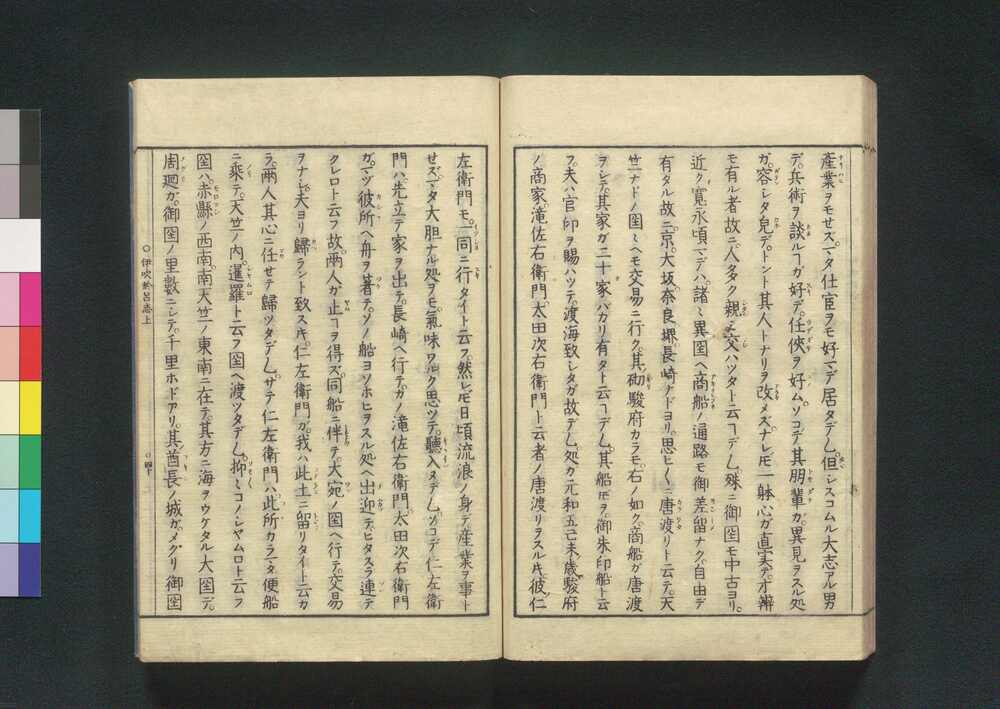 産業ヲモセズ。マタ仕官ヲモ好マデ居タデム。但シスコムル大志アル男
デ。兵術ヲ談ルヿガ好デ。任侠ヲ好ムソコデ其朋輩ガ。異見ヲスル処
ガ。容レタ皃デ。トント其人トナリヲ改メズ。ナレドモ一躰心ガ直実デ。才辨
モ有ル者故ニ。人多ク親ミ交ハツタト云コデム。殊ニ御国モ中古ヨリ。
近ク寛永頃マデハ。諸ミ異国ヘ商船ノ通路モ御差留ナク。自由デ
有タル故ニ。京。大坂。奈良。堺。長崎ナドヨリ。思ヒ〳〵ニ唐渡リト云テ。天
竺ナドノ国ミヘモ交易ニ行ク。其砌駿府カラモ。右ノ如ク商船ガ唐渡
ヲシテ。其家ガ二十家バカリ有タト云コデム。其船ヲ。御朱印船ト云
フ。夫ハ官印ヲ賜ハツテ。渡海致シタガ故デム処ガ元和五己未歳。駿府
ノ商家。滝佐右衛門。太田次右衛門ト云者ノ唐渡リヲスルトキ。彼仁
左衛門モ。一同ニ行タイト云フ。然レドモ日頃流浪ノ身デ産業ヲ事ト
セズ。マタ大胆ナル処ヲモ。氣味ワルク思ツテ。聽入ヌデム。ソコデ仁左衛
門ハ。先立テ家ヲ出デ。長崎ヘ行テ。カノ滝佐右衛門。太田次右衛門
ガ。マヅ彼所ヘ舟ヲ著テ。ソノ船ヨソホヒヲスル処ヘ出迎テ。ヒタスラ連テ
クレロト云フ故。兩人ガ止コヲ得ズ。同船ニ伴テ。大宛ノ国ヘ行テ。交易
ヲナシ。夫ヨリ歸ラント致スキ。仁左衛門ガ。我ハ此土ニ留リタイト云カ
ラ。兩人其心ニ任セテ歸ツタデム。サテ仁左衛門ハ。此所カラマタ便船
ニ乘テ。天竺ノ内。暹羅ト云フ国ヘ渡ツタデム。抑ミコノシヤムロト云フ
国ハ。赤縣ノ西南。南天竺ノ東南ニ在テ。其方ニ海ヲウケタル大国デ。
周廻ガ。御国ノ里數ニシテ。千里ホドアリ。其酋長ノ城ガ。メグリ御国
○伊吹於呂志上